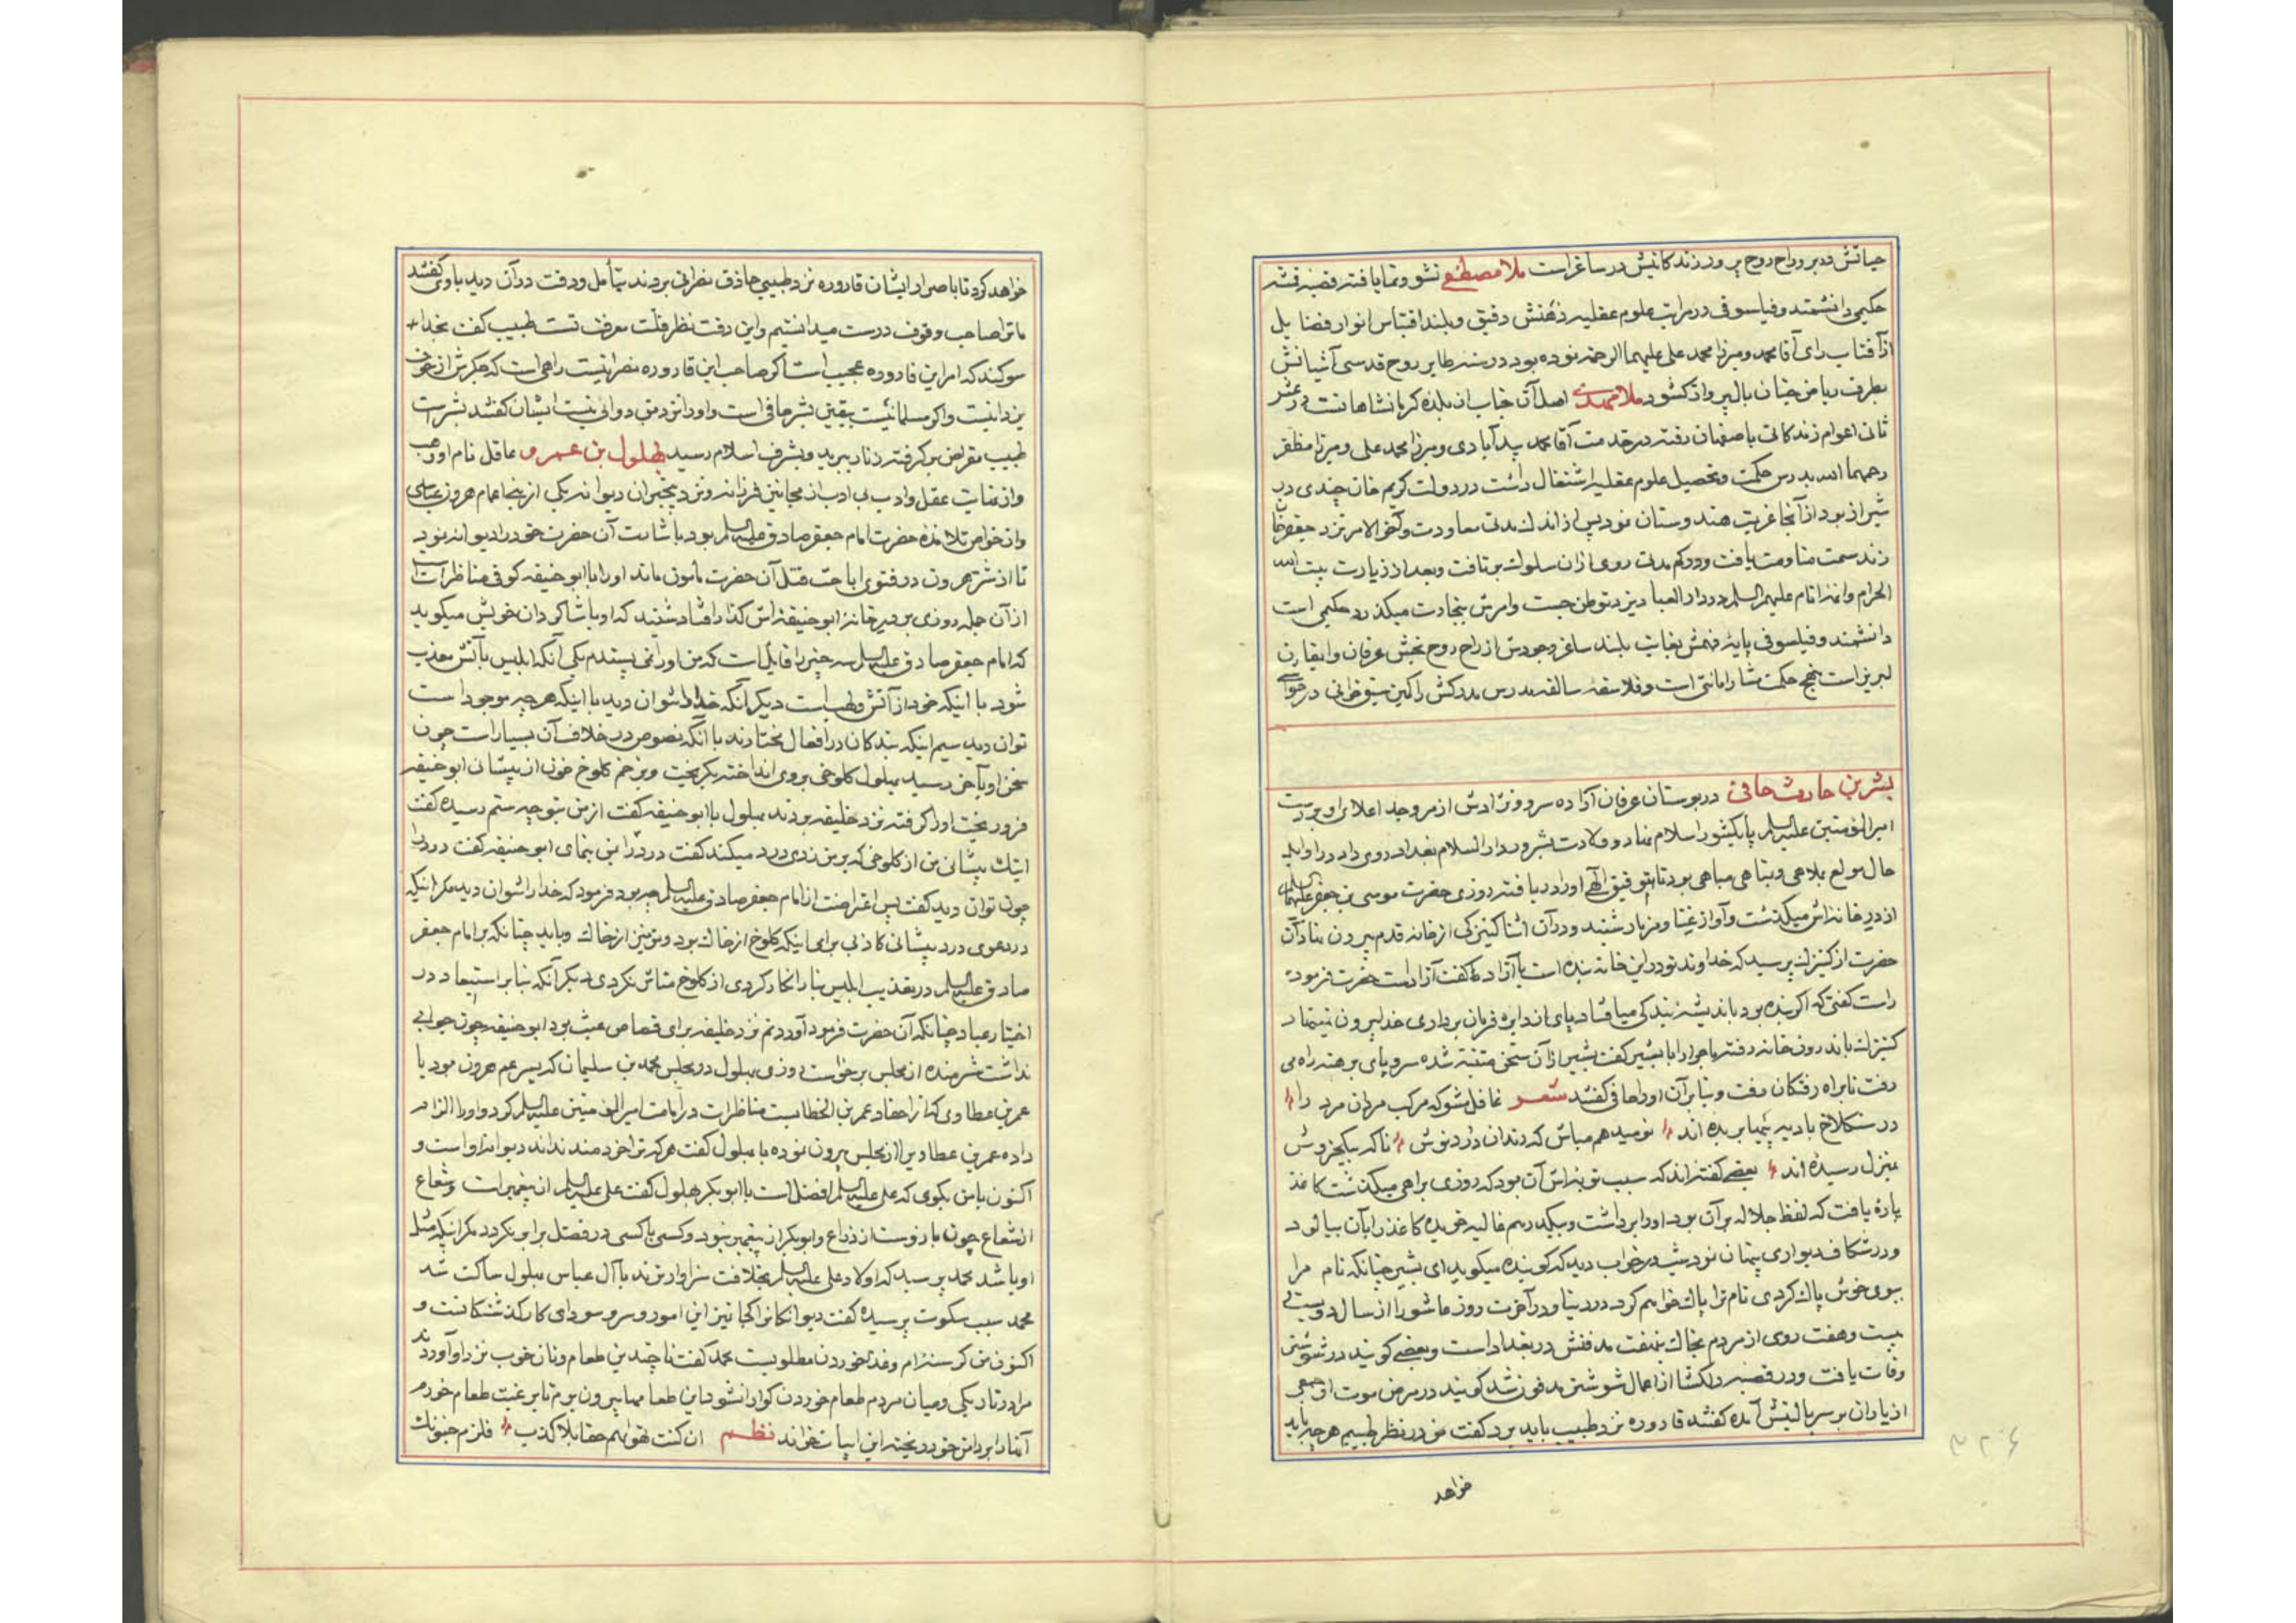 حیاتش ده پرور راح روح پرور زندکانیش در ساغر است ملا مصطفی نشو و نما یافته قصبه قمشه
حکیمی دانشمند و فیلسوفی در مراتب علوم عقلیه ذهنش دقیق و بلند اقتباس انوار فضایل
از آفتاب رای آقا محمد و میرزا محمد علی علیهما الرحمه نموده بود در سنه طایر روح قدسی آشیانش
بطرف ریاض جنان بال پرواز کشود ملا مهدی اصل آن جناب از بلده کرمانشاهانست در عشر
ثانی اعوام زندکانی باصفهان رفته در خدمت آقا محمد بیدآبادی و میرزا محمد علی و میرزا مظفر
رحمهما الله بدرس حکمت و تحصیل علوم عقلیه اشتغال داشت در دولت کریم خان چندی در
شیراز بود از آنجا عزیمت هندوستان نمود پس از اندک مدتی معاودت و آخر الامر نزد جعفر خان
زند سمت منادمت یافت و در کم مدتی روی از آن سلوک برتافت و بعد از زیارت بیت الله
الحرام و ائمه انام علیهم السلم در دار العباد یزد توطن جست و امرش بتجارت میکذرد حکیمی است
دانشمند و فیلسوفی پایه فهمش بغایت بلند ساغر وجودش از راح روح بخش عرفان و ایقان
لبریز است نهج حکمت مشا را بانی است و فلاسفه سالفه مدرس مدرکش را کمین سبق خوانی در قوافی
بشر بن حارث حافی در بوستان عرفان آزاده سرو و نژادش از مرو جد اعلای او بر دست
امیر المؤمنین علیه السلم پا بکشور اسلام نهاد و ولادت بشر در دار السلام بغداد روی داد در اوایل
حال مولع بملاهی و بمناهی مباهی بود تا توفیق الهی او را دریافته روزی حضرت موسی بن جعفر علیهما السلم
از در خانه اش میکذشت و آواز غنا و مزمار شنید و در آن اثنا کنیزکی از خانه قدم بیرون نهاد آن
حضرت از کنیزک پرسید که خداوند تو در این خانه بنده است یا آزاد گفت آزاد است حضرت فرمود
راست کفتی که اکر بنده بود باندیشه بندکی میافتاد و پای از دایره فرمان برداری خدا بیرون نمینهاد
کنیزک باندرون خانه رفته ماجرا را با بشر کفت بشر از آن سخن متنبه شده سر و پای برهنه راه می
رفت تا براه رفتکان رفت و بنا بر آن او را حافی کفتند شعر غافل مشو که مرکب مردان مرد را
در سنکلاخ بادیه پیها بریده اند نومید هم مباش که رندان درد نوش ناکه بیکخروش
بمنزل رسیده اند بعضی کفته اند که سبب توبه اش آن بود که روزی براهی میکذشت کاغذ
پاره یافت که لفظ جلاله بر آن بود او را برداشت و بیکدرهم غالیه خریده کاغذ را بآن بیالود
و در شکاف دیواری پنهان نمود شب در خواب دید که کوینده میکوید ای بشر چنانکه نام مرا
ببوی خوش پاک کردی نام ترا پاک خواهم کرد در دنیا و در آخرت روز عاشورا از سال دویست
بیست و هفت روی از مردم بخاک نهفت مدفنش در بغداد است و بعضی کویند در شوشتر
وفات یافت و در قصبه دلکشا از اعمال شوشتر مدفون شد کویند در مرض موت او جمعی
از یاران بر سر بالینش آمده کفتند قاروره نزد طبیب باید برد کفت من در نظر طبیبم هر چه باید
خواهد
خواهد کرد تا باصرار ایشان قاروره نزد طبیبی حاذق نصرانی بردند بتأمل و دقت در آن دید باوی کفتند
ما ترا صاحب وقوف درست میدانستیم و این دقت نظر قلت معرفت تست طبیب کفت بخدا
سوکند که امر این قاروره عجیب است اکر صاحب این قاروره نصرانیست راهبی است که جکرش از خوف
یزدانیست و اکر مسلمانیست بیقین بشر حافی است و او را نزد من دوائی نیست ایشان کفتند بشر است
طبیب مقراض بر کرفته زنار ببرید و بشرف اسلام رسید بهلول بن عمرو عاقل نام او وهب
و از غایت عقل و ادب بی ادب از مجانین فرزانه و نزد بیخبران دیوانه یکی از بنی اعمام هرون عباسی
و از خواص تلامذه حضرت امام جعفر صادق علیه السلم بود باشارت آن حضرت خود را دیوانه نمود
تا از شر هرون در فتوی اباحت قتل آن حضرت مأمون ماند او را با ابو حنیفه کوفی مناظرات است
از آن جمله روزی بر در خانه ابو حنیفه اش کذار افتاد شنید که او با شاکردان خویش میکوید
که امام جعفر صادق علیه السلم سه چیز را قایل است که من او را نمی پسندم یکی آنکه ابلیس بآتش معذب
شود با اینکه خود از آتش است دیکر آنکه خدا را نتوان دید با اینکه هر چه موجود است
توان دید سیم اینکه بندکان در افعال مختارند با آنکه نصوص در خلاف آن بسیار است چون
سخن او بآخر رسید بهلول کلوخی بر وی انداخته بکریخت و بزخم کلوخ خون از پیشانی ابو حنیفه
فرو ریخت او را کرفته نزد خلیفه بردند بهلول با ابو حنیفه کفت از من بتو چه ستم رسیده کفت
اینک پیشانی من از کلوخی که بر من زدی درد میکند کفت درد را بمن بنمای ابو حنیفه کفت درد را
چون توان دید کفت پس اعتراضت از امام جعفر صادق علیه السلم چه بود فرمود که خدا را نتوان دید مکر اینکه
در دعوی درد پیشانی کاذبی برای اینکه کلوخ از خاک بود و تو نیز از خاک و باید چنانکه بر امام جعفر
صادق علیه السلم در تعذیب ابلیس بنار انکار کردی از کلوخ متاثر نکردی دیکر آنکه بنا بر استبعاد در
اختیار عباد چنانکه آن حضرت فرمود آوردنم نزد خلیفه برای قصاص عبث بود ابو حنیفه چون جوابی
نداشت شرمنده از مجلس برخواست روزی بهلول در مجلس محمد بن سلیمان که پسر عم هرون بود با
عمر بن عطا وی که از احفاد عمر بن الخطابست مناظرات در امامت امیر المؤمنین علیه السلم کرد و او را الزام
داده عمر بن عطا دیرا از مجلس بیرون نموده با بهلول کفت هر که ترا خردمند نداند دیوانه او است و
اکنون با من بکوی که علی علیه السلم افضل است یا ابو بکر بهلول کفت علی علیه السلم از پیغمبر است و شعاع
از شعاع چون بازو است از ذراع و ابو بکر از پیغمبر نبود و کسی با کسی در فضل برابر نکردد مکر اینکه مثل
او باشد محمد پرسید که اولاد علی علیه السلم بخلافت سزاوارترند یا آل عباس بهلول ساکت شد
محمد سبب سکوت پرسید کفت دیوانکانرا کجا تمیز این امور و سر و سودای کار کذشتکانست و
اکنون من کرسنه ام و غذا خوردن مطلوبست محمد کفت تا چندین طعام و نان خوب نزد او آوردند
مرا در تاریکی و میان مردم طعام خوردن کوارا نشود این طعامها بیرون برم تا برغبت طعام خورم
آنها را بر دامن خود ریخته این ابیات خواند نظم ان کنت تهواهم حقا بلا کذب فلزم جنونک